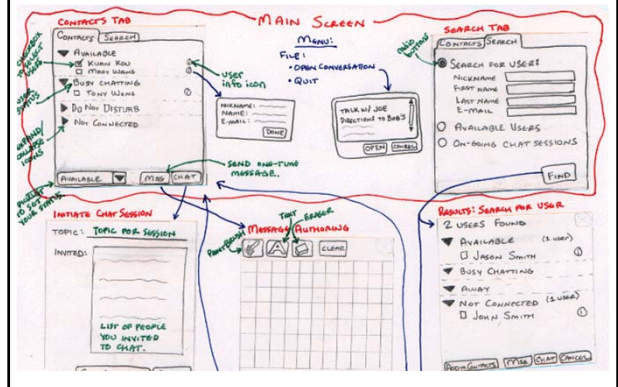 MAIN SCREEN
CONTACTS TAB
CONTACTS SEARCH
AVAILABLE
KUAN KOU
MARY WANG
BUSY CHATTING
TONY WONG
DO NOT DISTURB
NOT CONNECTED
AVAILABLE
MSG CHAT
CHECKBOX
TO SELECT
USERS
USER
STATUS
EXPAND/
COLLAPSE
ICONS
TO SET
YOUR STATUS
USER
INFO ICON
SEND ONE-TIME
MESSAGE..
MENU:
FILE:
• OPEN CONVERSATION
• QUIT
NICKNAME:
NAME:
E-MAIL:
DONE
TALK W/ JOE
DIRECTIONS TO BOB'S
OPEN CANCEL
SEARCH TAB
RADIO
BUTTONS
CONTACTS SEARCH
SEARCH FOR USER:
NICKNAME
FIRST NAME
LAST NAME
E-MAIL
AVAILABLE USERS
ON-GOING CHAT SESSIONS
FIND
INITIATE CHAT SESSION
TOPIC: TOPIC FOR SESSION
INVITED:
LIST OF PEOPLE
YOU INVITED
TO CHAT.
MESSAGE AUTHORING
PAINTBRUSH
TEXT
ERASER
A
CLEAR
RESULTS: SEARCH FOR USER
2 USERS FOUND
AVAILABLE (1 USER)
JASON SMITH
BUSY CHATTING
AWAY
NOT CONNECTED (1 USER)
JOHN SMITH
MSG CHAT CANCEL